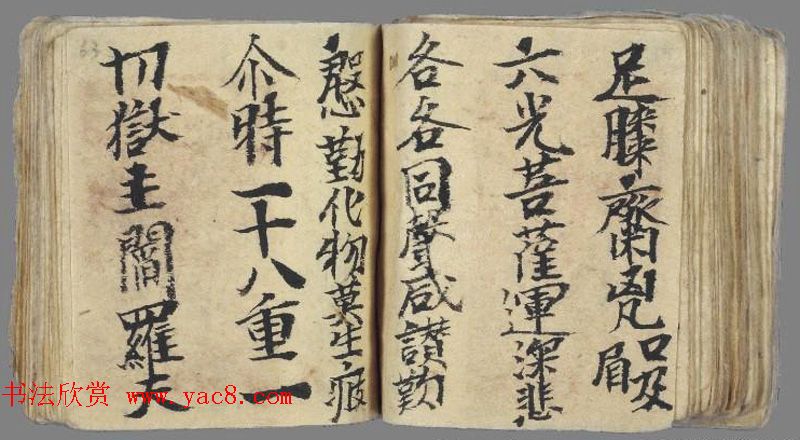 足膝齊兇口及眉
六光菩薩運深悲
各各同聲咸讃勤
慇勤化物莫生疲
尒時一十八重一
切獄主閻羅夫
书法欣赏 www.yac8.com